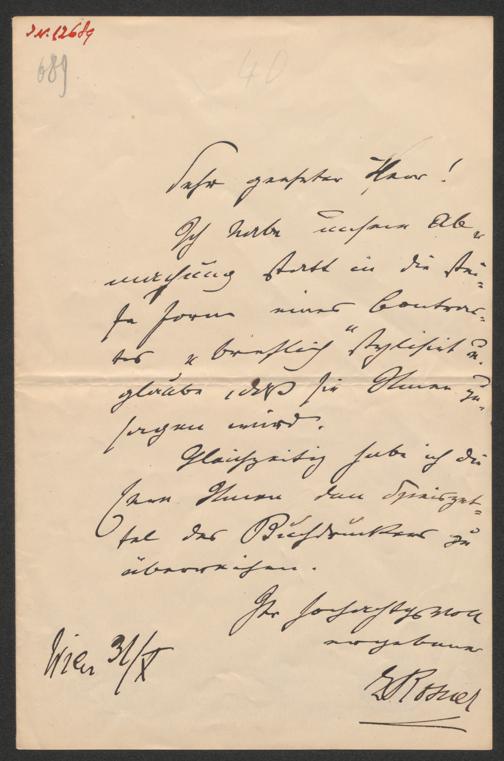 J.N. 12689
689
40
Sehr geehrter Herr!
Ich habe unsere Ab-
machung statt in die stei-
fe Form eines Contrac-
tes "brieflich" stylisirt u.
glaube, daß sie Ihnen zu-
sagen wird.
Gleichzeitig habe ich die
Ehre Ihnen den Speiszet-
tel des Buchdruckers zu
überreichen.
Ihr hochachtungsvoll
ergebener
LRosner
Wien 31/X